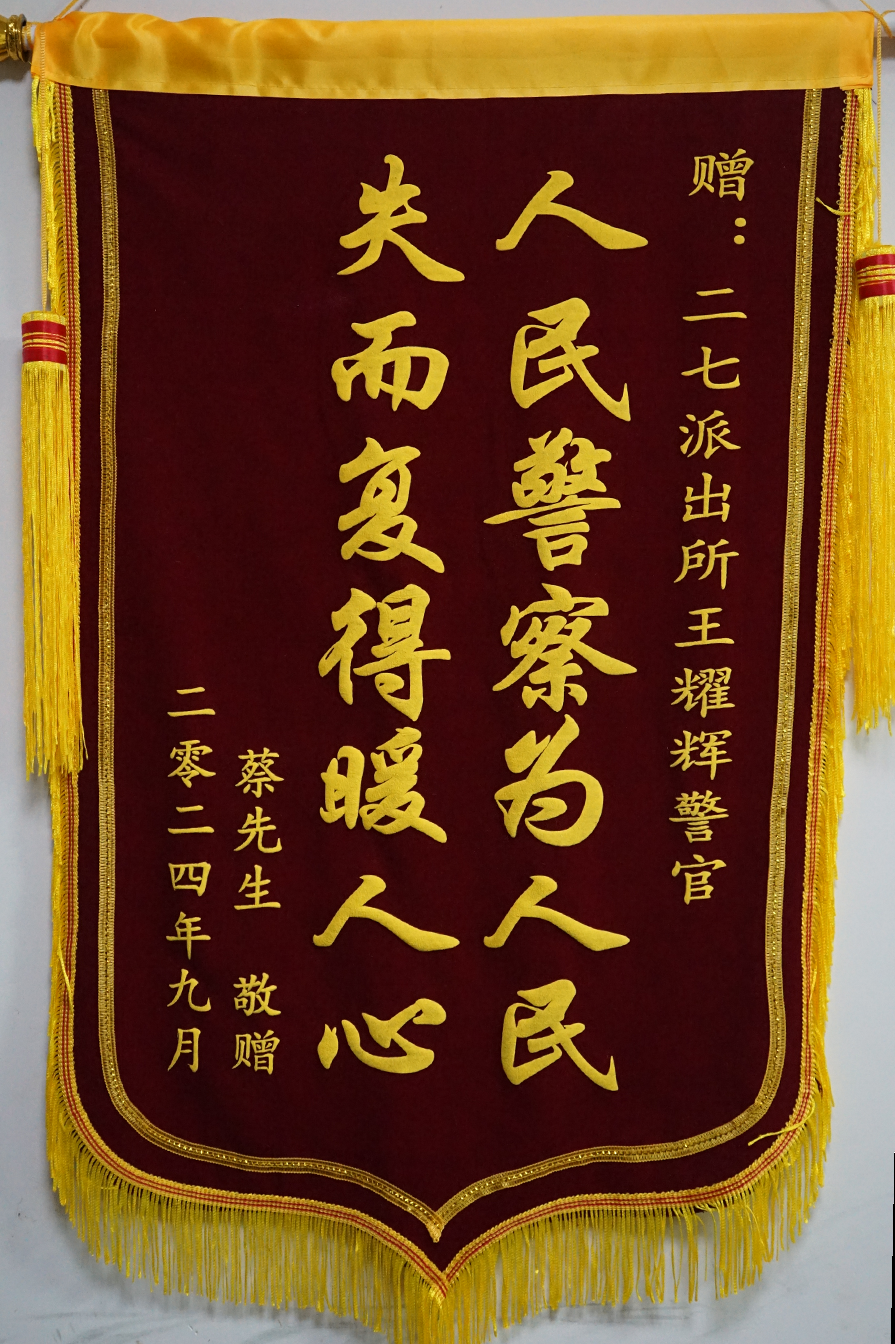 赠：二七派出所王耀辉警官
人民警察为人民
失而复得暖人心
蔡先生 敬赠
二零二四年九月